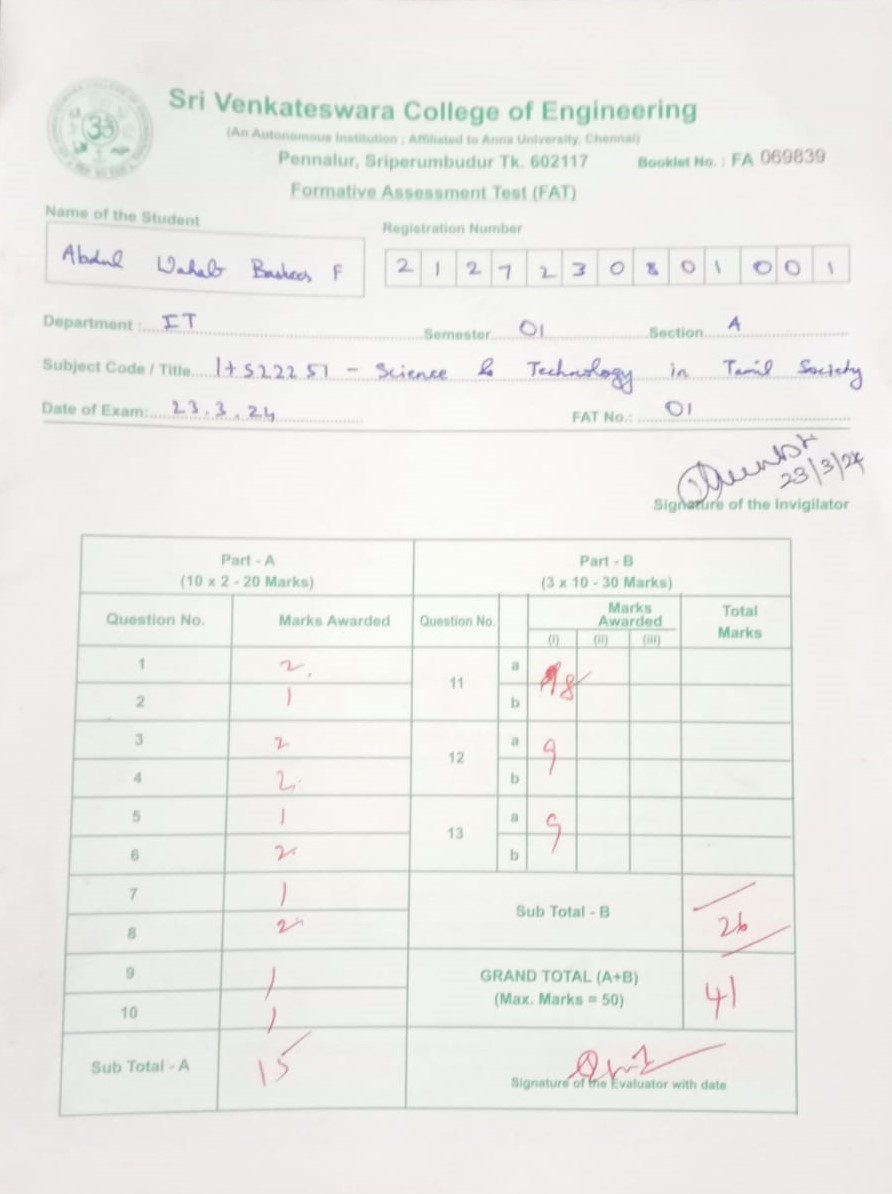 Sri Venkateswara College of Engineering
(An Autonomous Institution ; Affiliated to Anna University, Chennai)
Pennalur, Sriperumbudur Tk. 602117
Booklet No. : FA 069839
Formative Assessment Test (FAT)
Name of the Student
Registration Number
Abdul Wahab Basheer F
2 1 2 7 2 3 0 8 0 1 0 0 1
Department : IT Semester 01 Section A
Subject Code / Title 1+S22251 - Science & Technology in Tamil Society
Date of Exam: 23.3.24 FAT No.: 01
23/3/24
Signature of the Invigilator
Part - A Part - B
(10 x 2 - 20 Marks) (3 x 10 - 30 Marks)
Question No. Marks Awarded Question No. Marks Awarded Total Marks
(i) (ii) (iii)
1 2 11 a 8
2 1 b
3 2 12 a 9
4 2 b
5 1 13 a 9
6 2 b
7 1 Sub Total - B 26
8 2
9 1 GRAND TOTAL (A+B) 41
10 1 (Max. Marks = 50)
Sub Total - A 15
Signature of the Evaluator with date